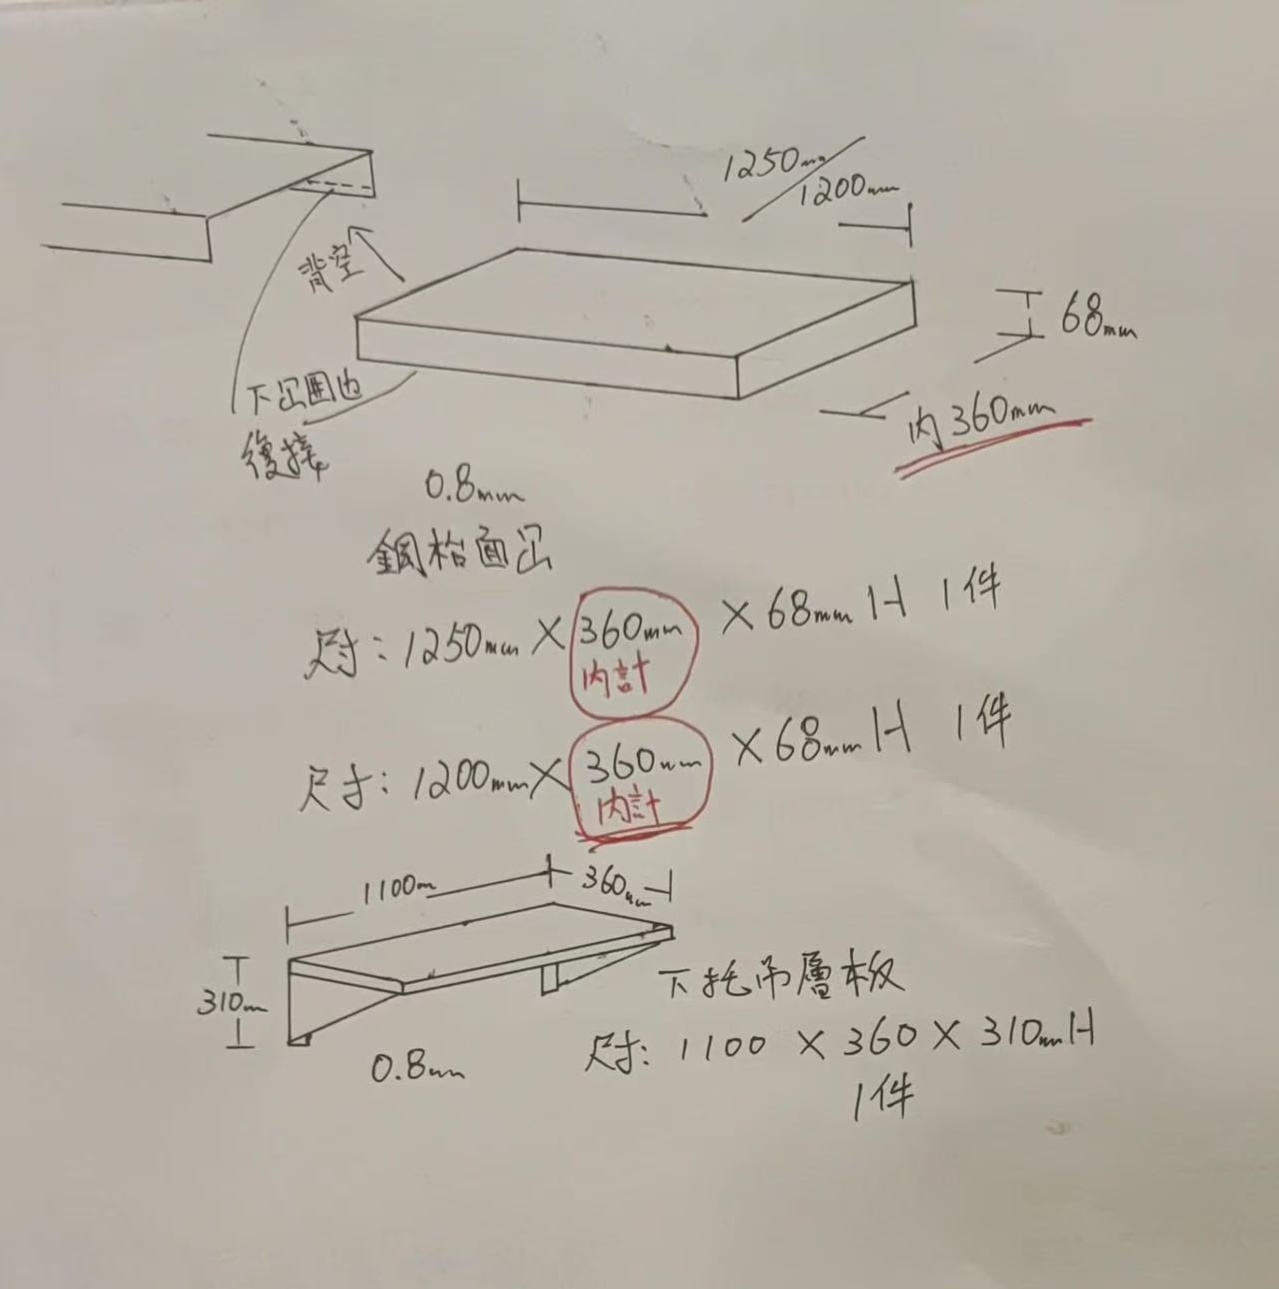 1250mm
1200mm
背空
68mm
下凹围边
後接
内360mm
0.8mm
鋼枱面凹
尺寸：1250mm × 360mm × 68mm H 1件
内計
尺寸：1200mm × 360mm × 68mm H 1件
内計
1100m
360mm
310mm
下托吊層板
0.8mm
尺寸：1100 × 360 × 310mm H
1件